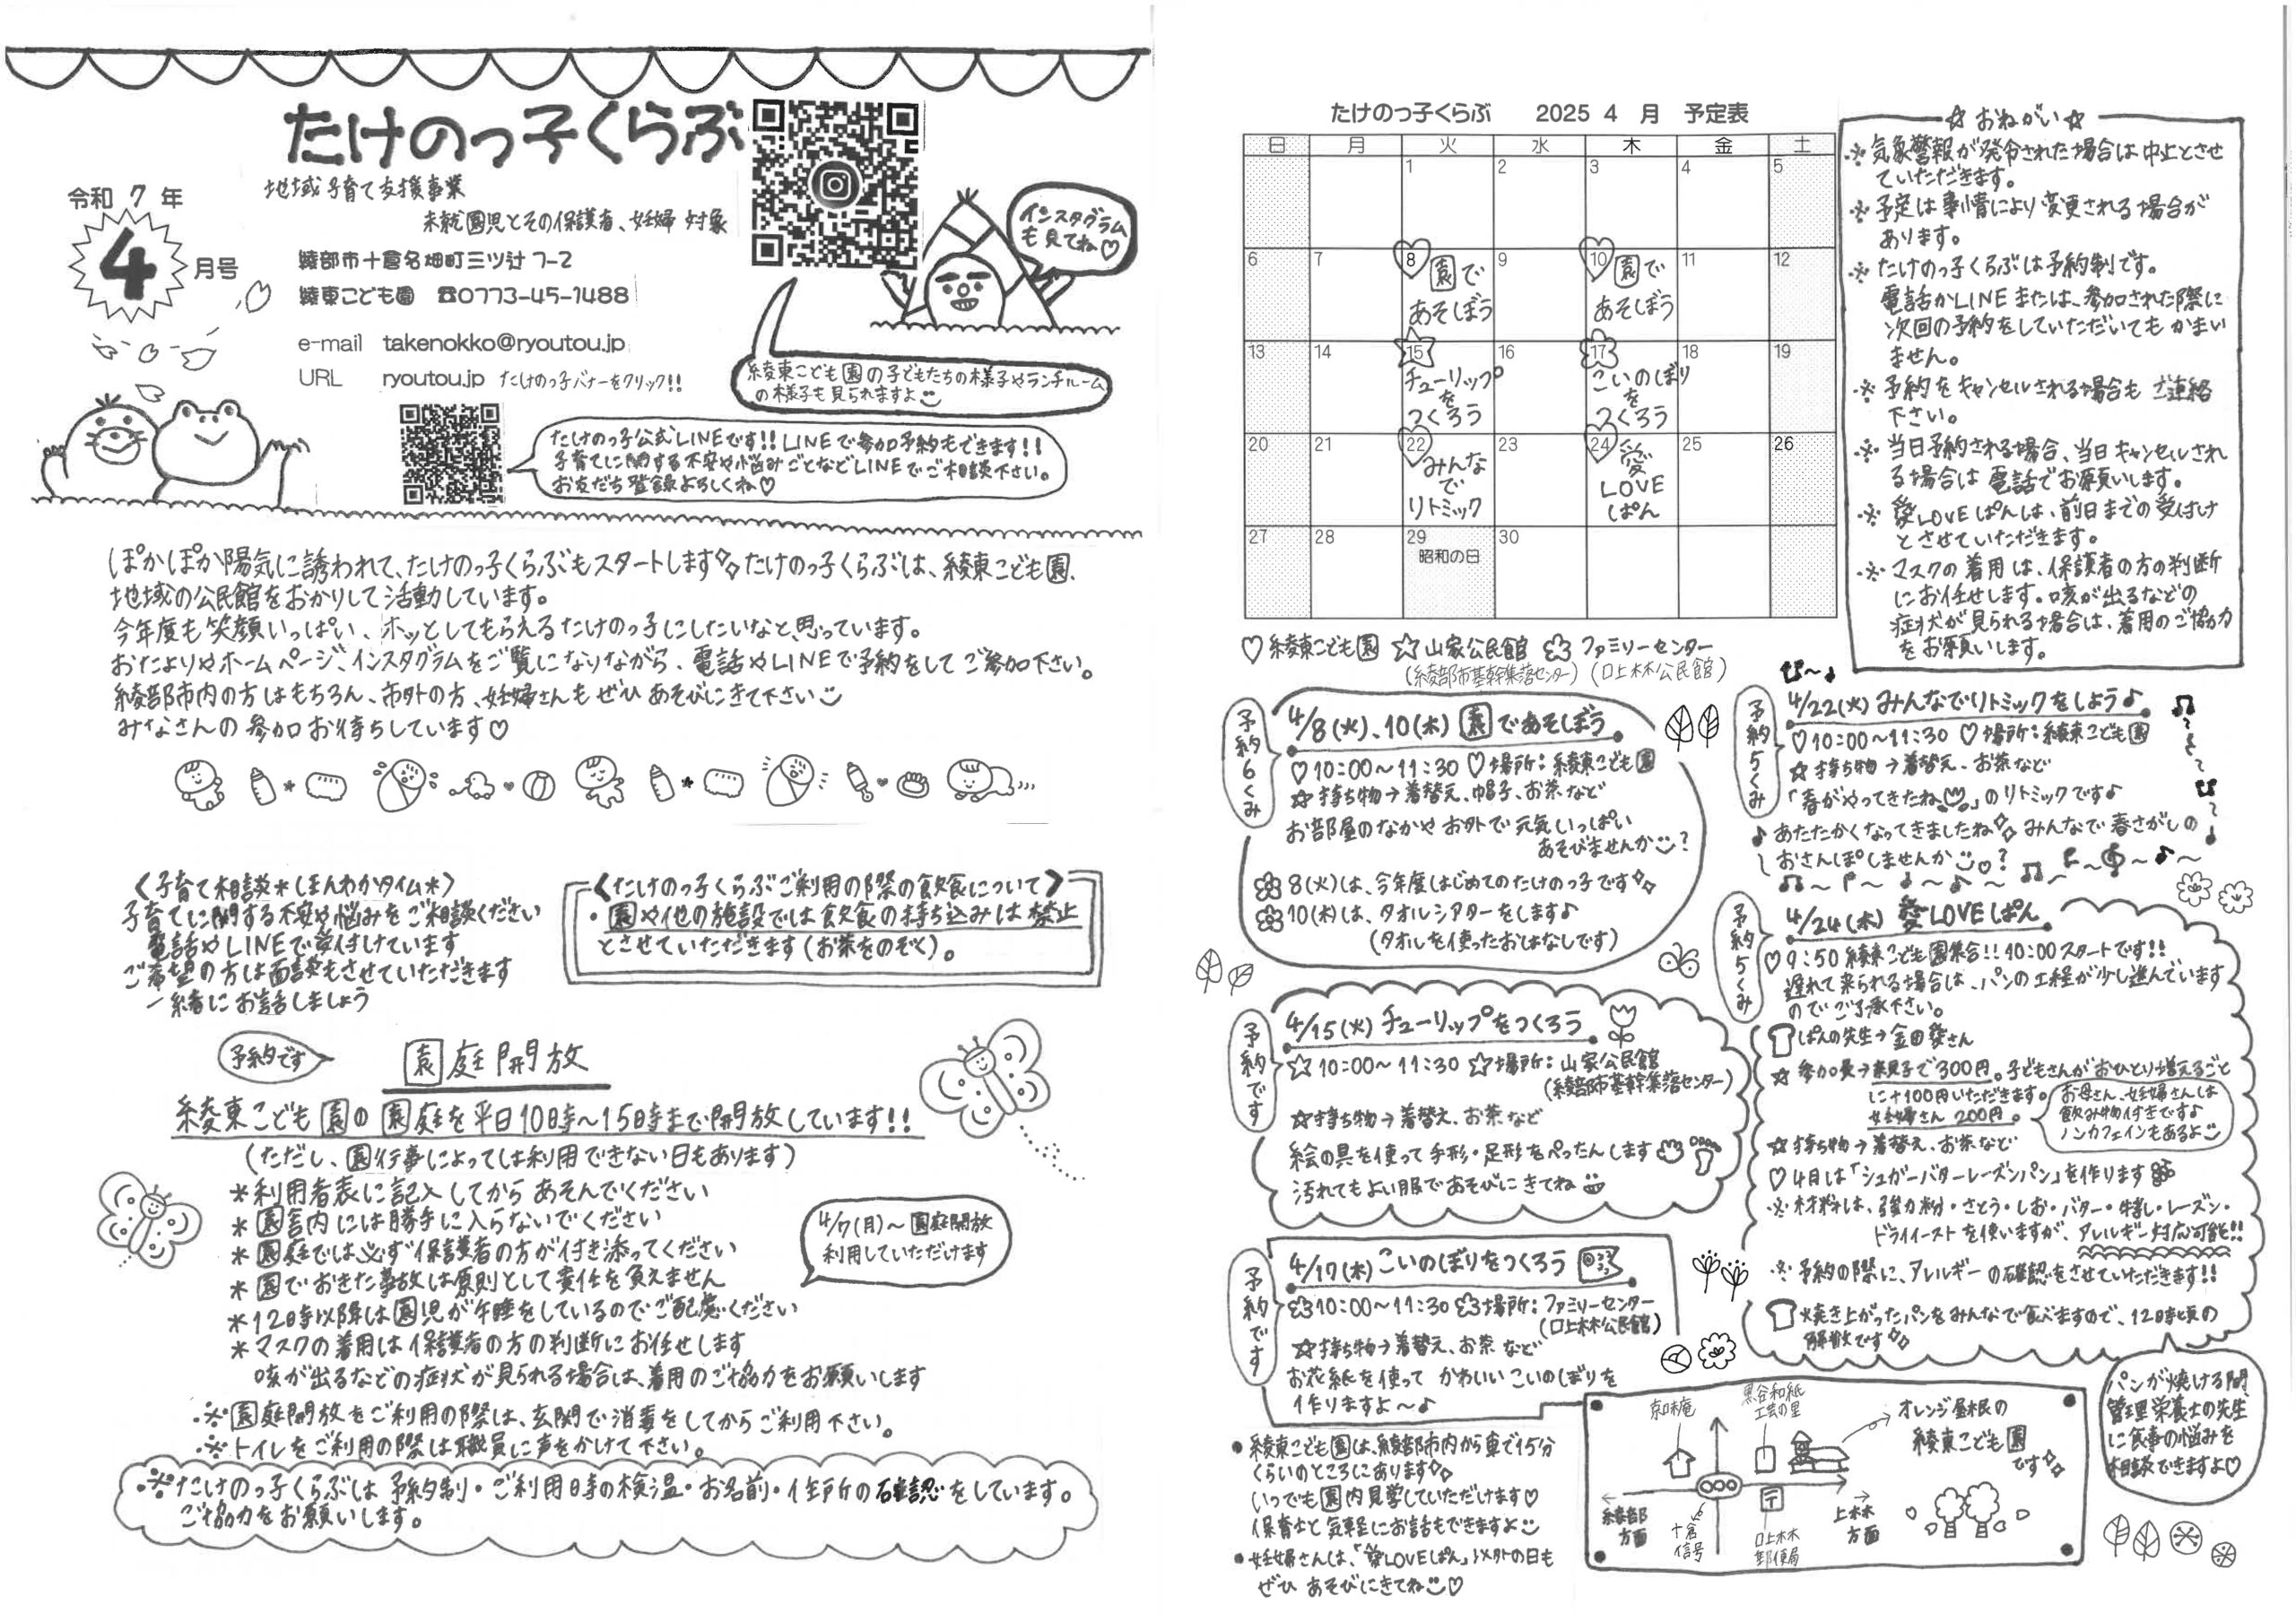 たけのっ子くらぶ
令和 7 年
4
月号
地域子育て支援事業
未就園児とその保護者、妊婦 対象
綾部市十倉名畑町三ツ辻 7-2
綾東こども園 ☎0773-45-1488
e-mail takenokko@ryoutou.jp
URL ryoutou.jp たけのっ子バナーをクリック!!
インスタグラム
も見てね♡
綾東こども園の子どもたちの様子やランチルーム
の様子も見られますよ
たけのっ子公式LINEです!! LINEで参加予約もできます!!
子育てに関する不安や悩みごとなどLINEでご相談下さい。
お友だち登録よろしくね♡
ぽかぽか陽気に誘われて、たけのっ子くらぶもスタートします たけのっ子くらぶは、綾東こども園、
地域の公民館をおかりして活動しています。
今年度も笑顔いっぱい、ホッとしてもらえるたけのっ子にしたいなと思っています。
おたよりやホームページ、インスタグラムをご覧になりながら、電話やLINEで予約をしてご参加下さい。
綾部市内の方はもちろん、市外の方、妊婦さんもぜひあそびにきて下さい
みなさんの参加お待ちしています♡
〈子育て相談＊ほんわかタイム＊〉
子育てに関する不安や悩みをご相談ください
電話やLINEで受付けています
ご希望の方は面談もさせていただきます
一緒にお話しましょう
〈たけのっ子くらぶご利用の際の飲食について〉
・園や他の施設では飲食の持ち込みは禁止
とさせていただきます(お茶をのぞく)。
予約です
園庭開放
綾東こども園の園庭を平日10時～15時まで開放しています!!
(ただし、園行事によっては利用できない日もあります)
＊利用者表に記入してからあそんでください
＊園舎内には勝手に入らないでください
＊園庭では必ず保護者の方が付き添ってください
＊園でおきた事故は原則として責任を負えません
＊12時以降は園児が午睡をしているのでご配慮ください
＊マスクの着用は保護者の方の判断にお任せします
咳が出るなどの症状が見られる場合は、着用のご協力をお願いします
4/7(月)～園庭開放
利用していただけます
※園庭開放をご利用の際は、玄関で消毒をしてからご利用下さい。
※トイレをご利用の際は職員に声をかけて下さい。
※たけのっ子くらぶは予約制・ご利用時の検温・お名前・住所の確認をしています。
ご協力をお願いします。
たけのっ子くらぶ 2025 4 月 予定表
日 月 火 水 木 金 土
1 2 3 4 5
6 7 8 園であそぼう 9 10 園であそぼう 11 12
13 14 15 チューリップをつくろう 16 17 こいのぼりをつくろう 18 19
20 21 22 みんなでリトミック 23 24 愛LOVEぱん 25 26
27 28 29 昭和の日 30
♡綾東こども園 ☆山家公民館 ファミリーセンター
(綾部市基幹集落センター) (口上林公民館)
☆おねがい☆
※気象警報が発令された場合は中止とさせ
ていただきます。
※予定は事情により変更される場合が
あります。
※たけのっ子くらぶは予約制です。
電話かLINEまたは、参加された際に
次回の予約をしていただいてもかまい
ません。
※予約をキャンセルされる場合もご連絡
下さい。
※当日予約される場合、当日キャンセルされ
る場合は電話でお願いします。
※愛LOVEぱんは、前日までの受付け
とさせていただきます。
※マスクの着用は、保護者の方の判断
にお任せします。咳が出るなどの
症状が見られる場合は、着用のご協力
をお願いします。
予約6くみ
4/8(火)、10(木) 園であそぼう
♡10:00～11:30 ♡場所：綾東こども園
☆持ち物→着替え、帽子、お茶など
お部屋のなかやお外で元気いっぱい
あそびませんか?
8(火)は、今年度はじめてのたけのっ子です
10(木)は、タオルシアターをします♪
(タオルを使ったおはなしです)
予約です
4/15(火) チューリップをつくろう
☆10:00～11:30 ☆場所：山家公民館
(綾部市基幹集落センター)
☆持ち物→着替え、お茶など
絵の具を使って手形・足形をぺったんします
汚れてもよい服であそびにきてね
予約です
4/17(木) こいのぼりをつくろう
10:00～11:30 場所：ファミリーセンター
(口上林公民館)
☆持ち物→着替え、お茶など
お花紙を使ってかわいいこいのぼりを
作りますよ～♪
●綾東こども園は、綾部市内から車で15分
くらいのところにあります
いつでも園内見学していただけます♡
保育士と気軽にお話もできますよ
●妊婦さんは、「愛LOVEぱん」以外の日も
ぜひあそびにきてね♡
予約5くみ
4/22(火) みんなでリトミックをしよう♪
♡10:00～11:30 ♡場所：綾東こども園
☆持ち物→着替え、お茶など
「春がやってきたね」のリトミックです♪
♪あたたかくなってきましたね みんなで春さがしの
おさんぽしませんか♡?
予約5くみ
4/24(木) 愛LOVEぱん
♡9:50 綾東こども園集合!! 10:00スタートです!!
遅れて来られる場合は、パンの工程が少し進んでいます
のでご了承下さい。
ぱんの先生→金田愛さん
☆参加費→親子で300円。子どもさんがおひとり増えるごと
に+100円いただきます。
妊婦さん 200円。
お母さん、妊婦さんは
飲み物付きです♪
ノンカフェインもあるよ
☆持ち物→着替え、お茶など
♡4月は「シュガーバターレーズンパン」を作ります
※材料は、強力粉・さとう・しお・バター・牛乳・レーズン・
ドライイーストを使いますが、アレルギー対応可能!!
※予約の際に、アレルギーの確認をさせていただきます!!
焼き上がったパンをみんなで食べますので、12時頃の
解散です
パンが焼ける間
管理栄養士の先生
に食事の悩みを
相談できますよ♡
京味庵
黒谷和紙
工芸の里
オレンジ屋根の
綾東こども園
です
綾部
方面
十倉
信号
口上林
郵便局
上林
方面